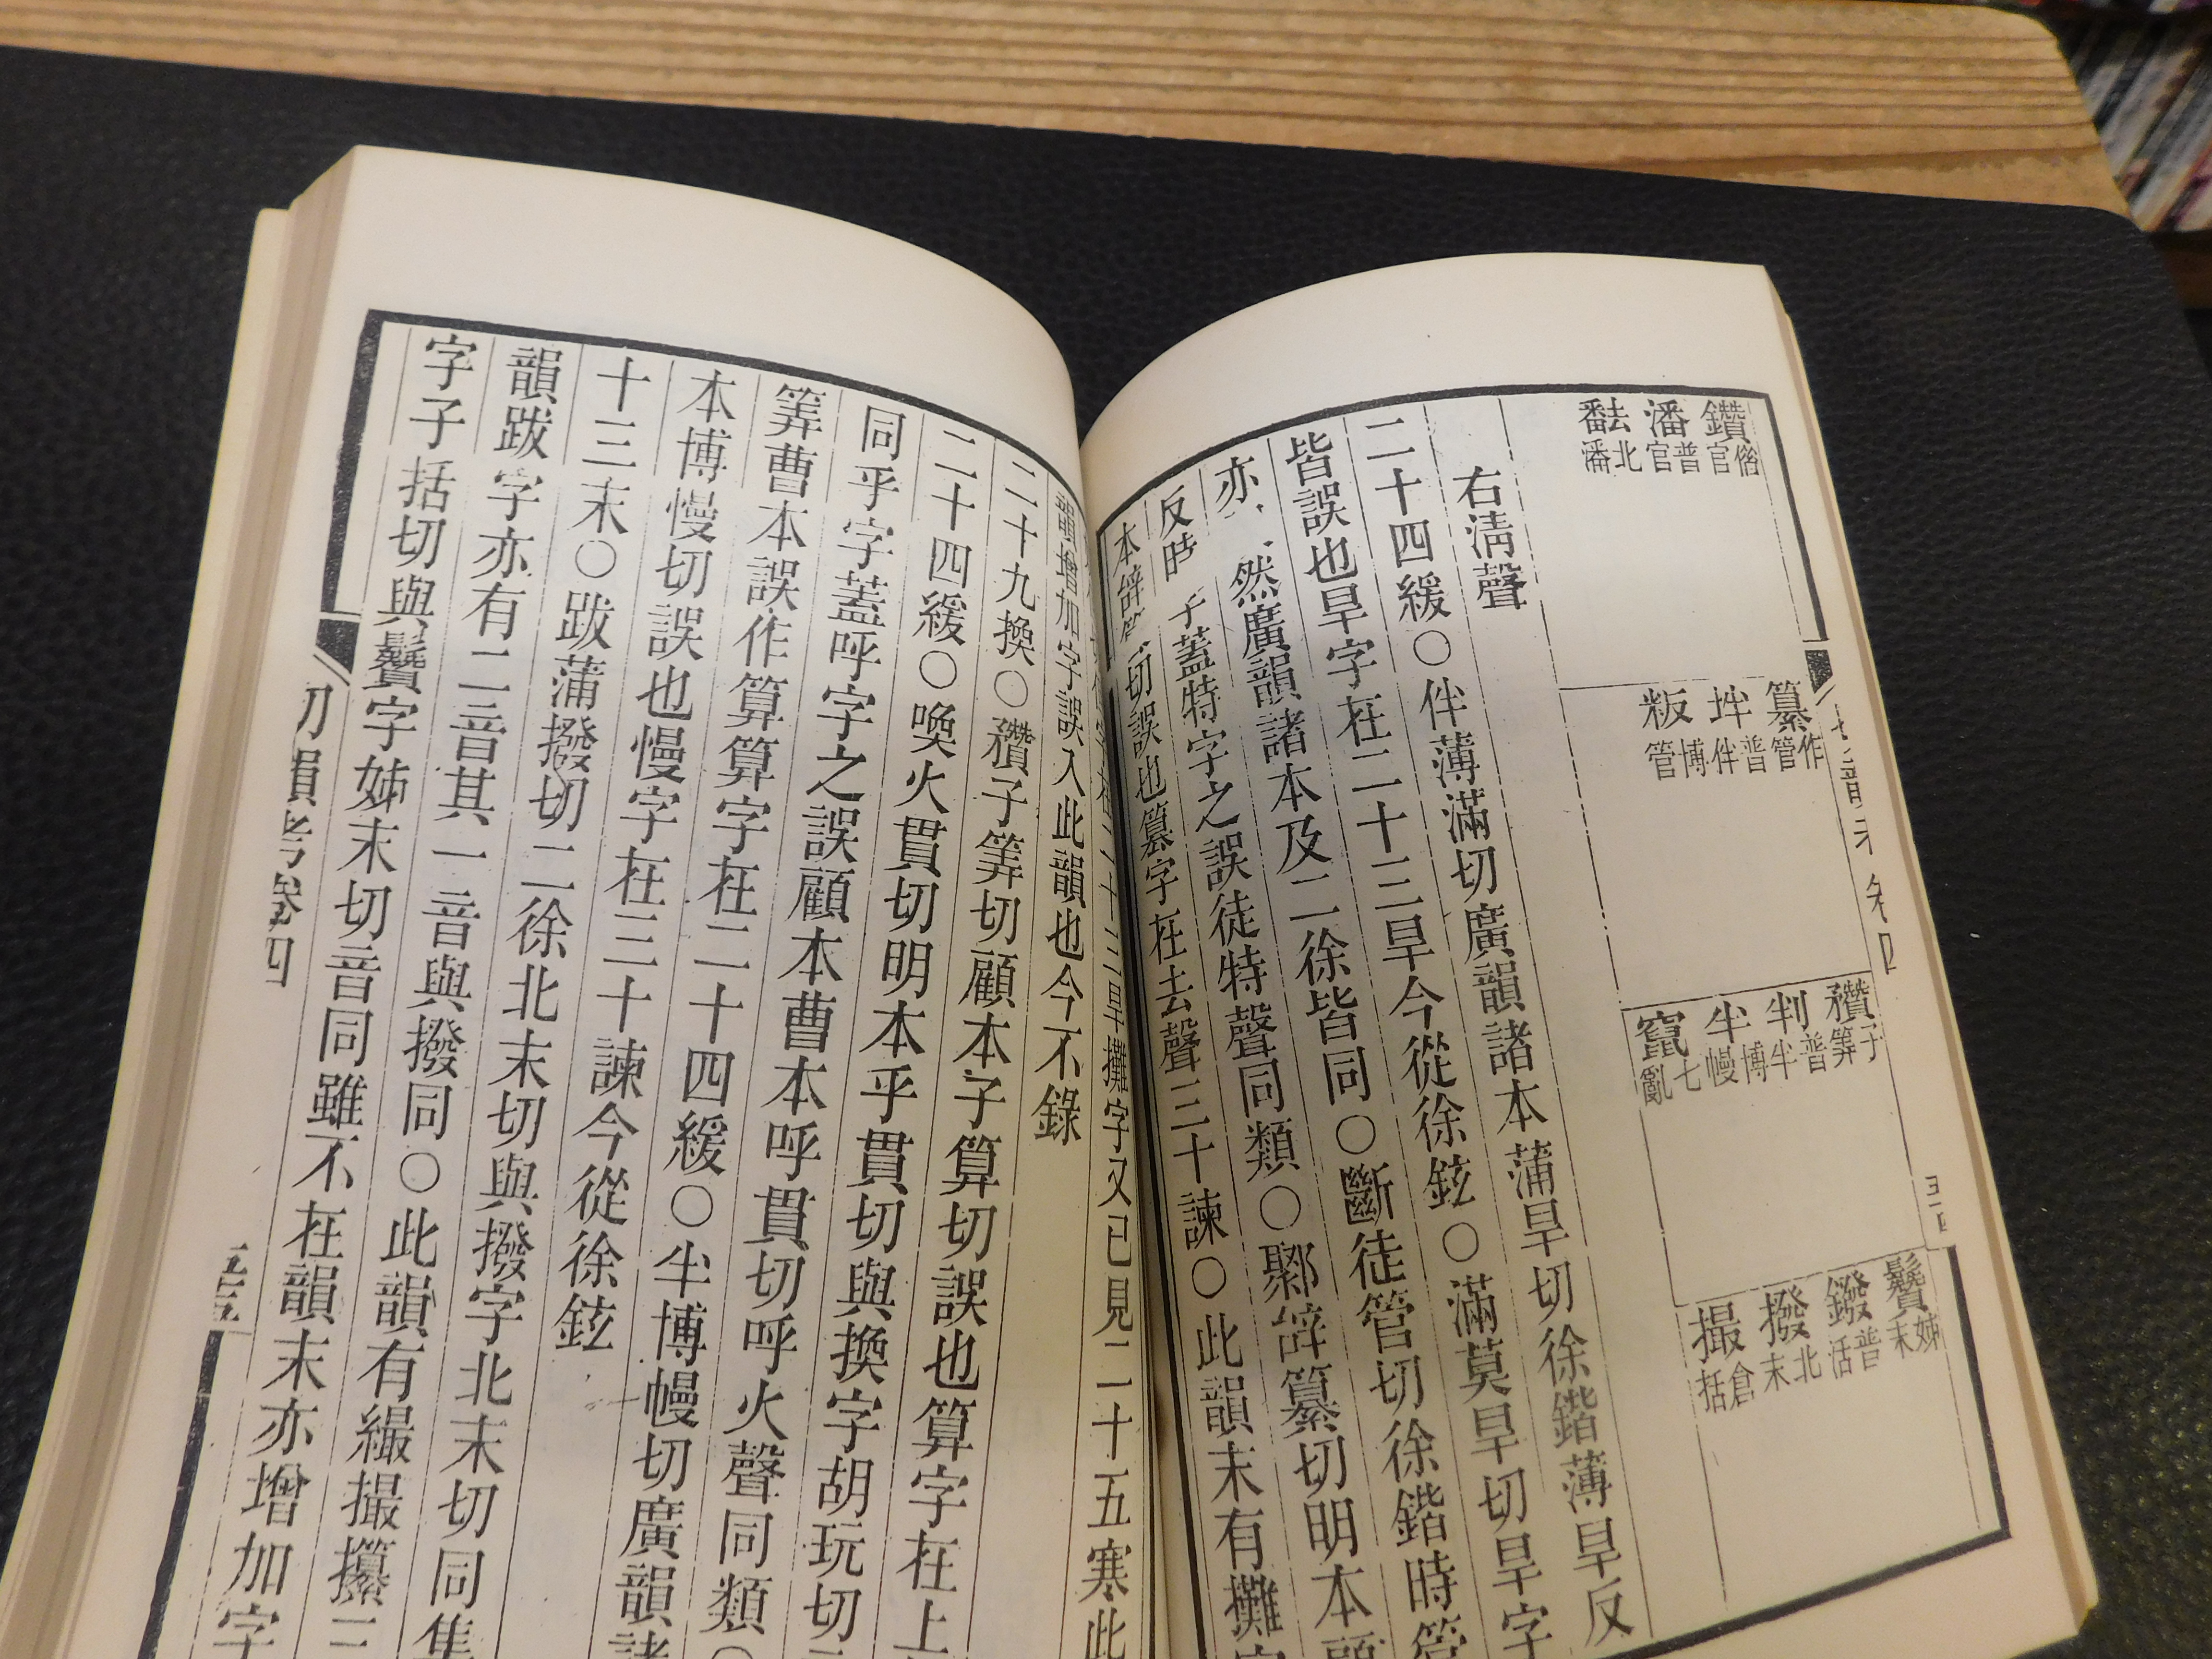 鑽借官
潘普官
𤄫北潘
纂作管
坢普伴
粄博管
穳子筭
判普半
半博幔
竄七亂
鬢姊末
鏺普活
撥北末
撮倉括
右淸聲
二十四緩○伴薄滿切廣韻諸本蒲旱切徐鍇薄旱反
皆誤也旱字在二十三旱今從徐鉉○滿莫旱切旱字
亦 然廣韻諸本及二徐皆同○斷徒管切徐鍇時管
反時 子蓋特字之誤徒特聲同類○鄹辝纂切明本顧
本辝 切誤也篡字在去聲三十諫○此韻末有攤字
二十三旱攤字又已見二十五寒此
韻增加字誤入此韻也今不錄
二十九換○穳子筭切顧本子算切誤也算字在上
二十四緩○喚火貫切明本乎貫切與換字胡玩切
同乎字蓋呼字之誤顧本曹本呼貫切呼火聲同類○
筭曹本誤作算算字在二十四緩○半博幔切廣韻諸
本博慢切誤也慢字在三十諫今從徐鉉
十三末○跋蒲撥切二徐北末切與撥字北末切同集
韻跋字亦有二音其一音與撥同○此韻有繓撮攥三
字子括切與鬢字姊末切音同雖不在韻末亦增加字
切韻考卷四